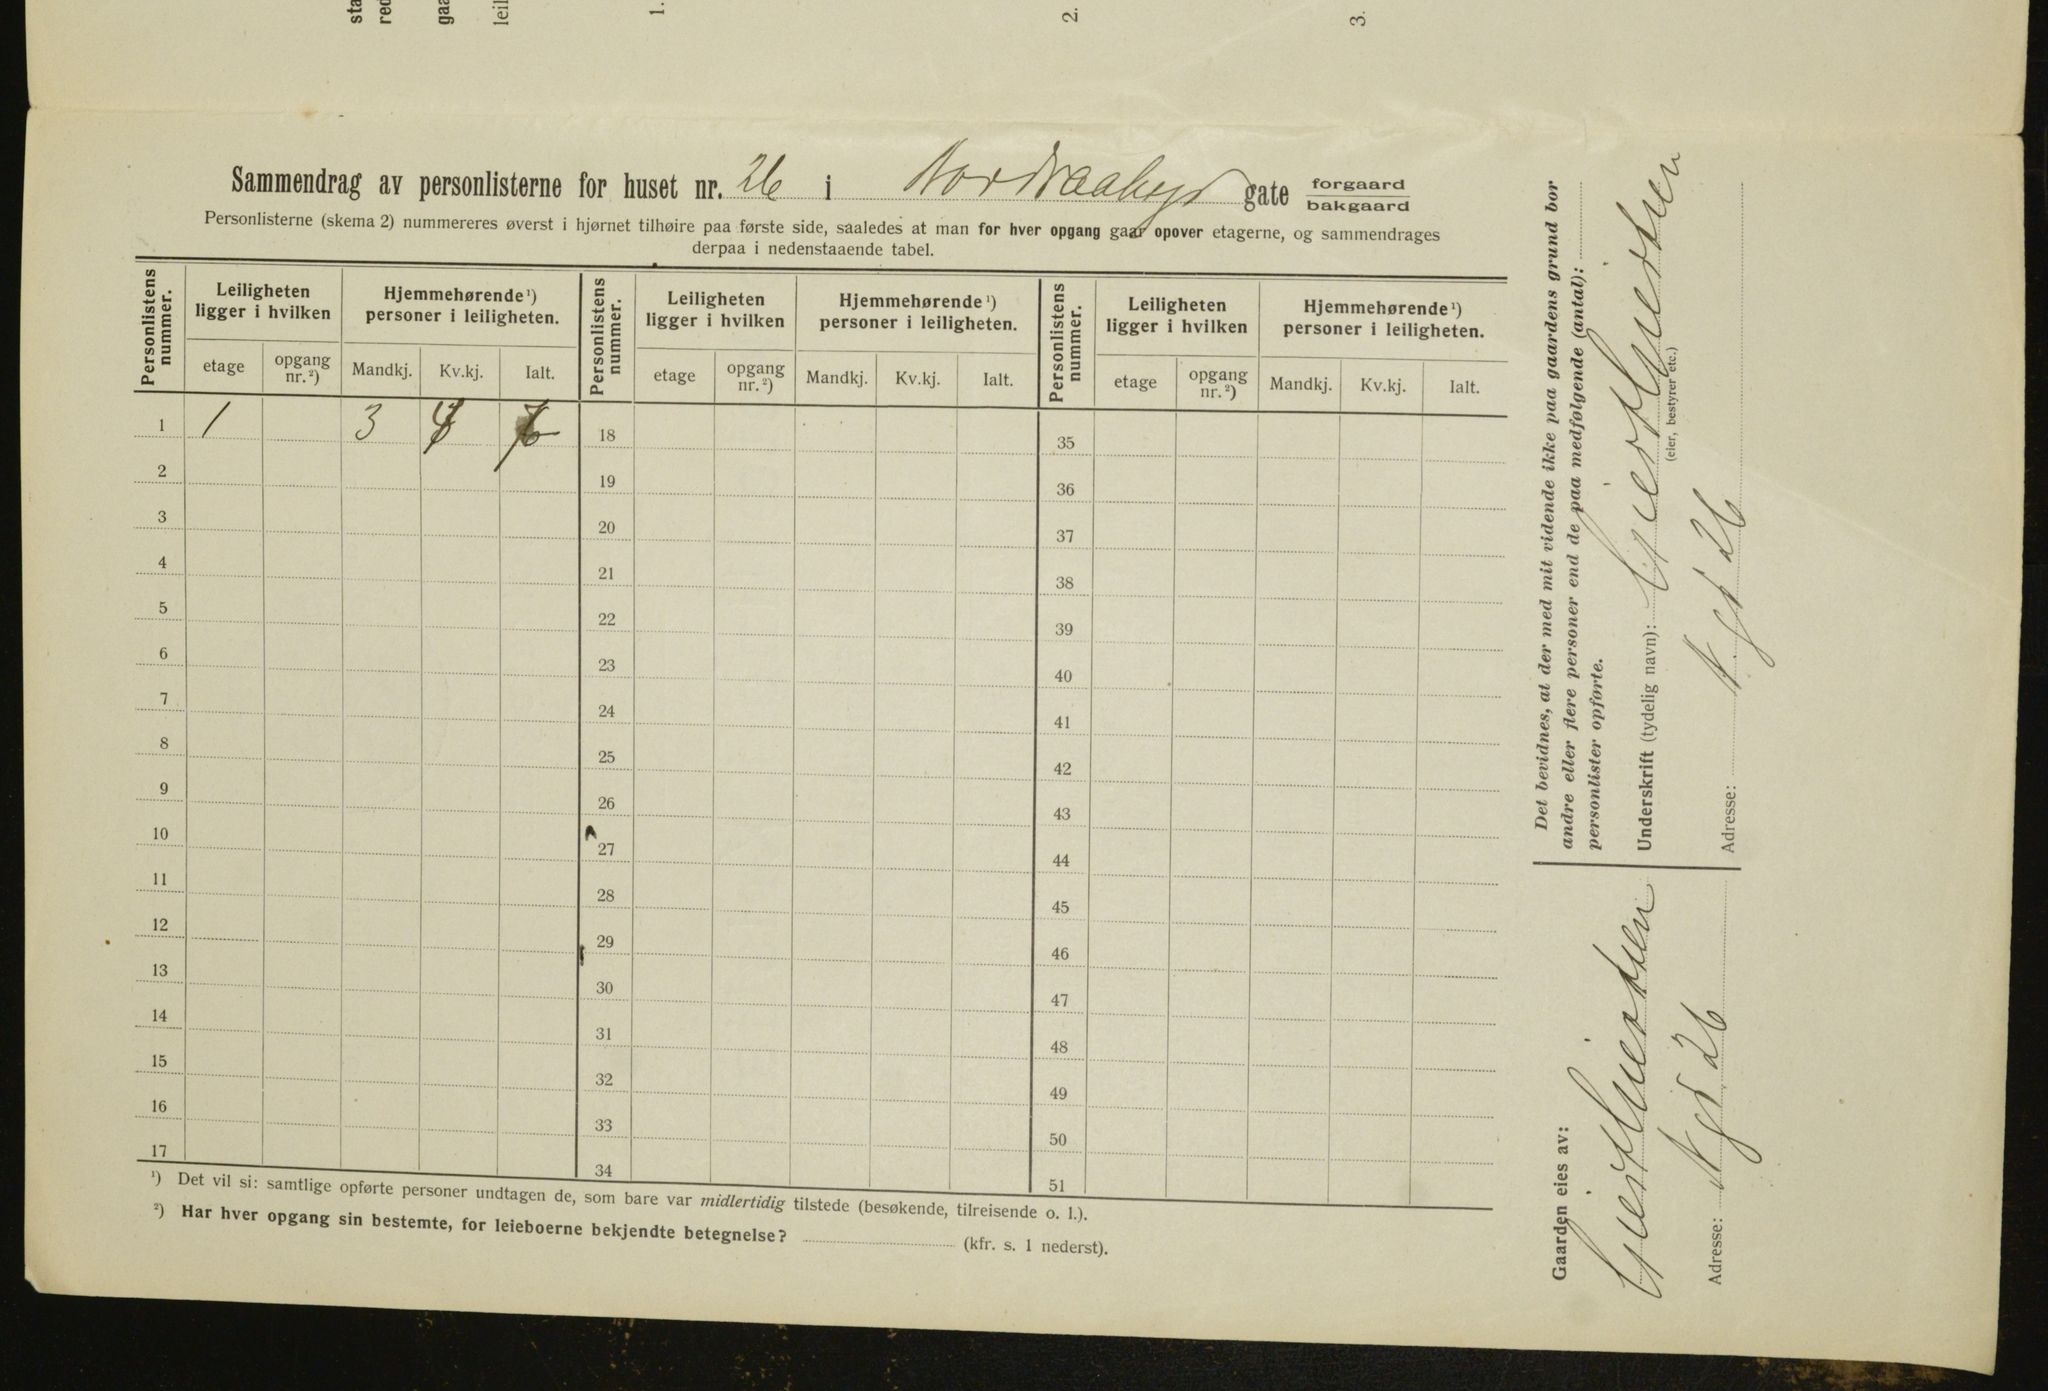 sta
red
gaa
leil
1.
2.
3.
Sammendrag av personlisterne for huset nr. 26 i Nordraabygd gate forgaard bakgaard
Personlisterne (skema 2) nummereres øverst i hjørnet tilhøire paa første side, saaledes at man for hver opgang gaar opover etagerne, og sammendrages
derpaa i nedenstaaende tabel.
Personlistens nummer. Leiligheten ligger i hvilken Hjemmehørende ¹) personer i leiligheten. Personlistens nummer. Leiligheten ligger i hvilken Hjemmehørende ¹) personer i leiligheten. Personlistens nummer. Leiligheten ligger i hvilken Hjemmehørende ¹) personer i leiligheten.
etage opgang nr. ²) Mandkj. Kv.kj. Ialt. etage opgang nr. ²) Mandkj. Kv.kj. Ialt. etage opgang nr. ²) Mandkj. Kv.kj. Ialt.
1 1 3 18 35
2 19 36
3 20 37
4 21 38
5 22 39
6 23 40
7 24 41
8 25 42
9 26 43
10 27 44
11 28 45
12 29 46
13 30 47
14 31 48
15 32 49
16 33 50
17 34 51
¹) Det vil si: samtlige opførte personer undtagen de, som bare var midlertidig tilstede (besøkende, tilreisende o. l.).
²) Har hver opgang sin bestemte, for leieboerne bekjendte betegnelse? (kfr. s. 1 nederst).
Det bevidnes, at der med mit vidende ikke paa gaardens grund bor
andre eller flere personer end de paa medfølgende (antal):
personlister opførte.
Underskrift (tydelig navn):
(eier, bestyrer etc.)
Adresse: N gd 26
Gaarden eies av:
Adresse: N gd 26